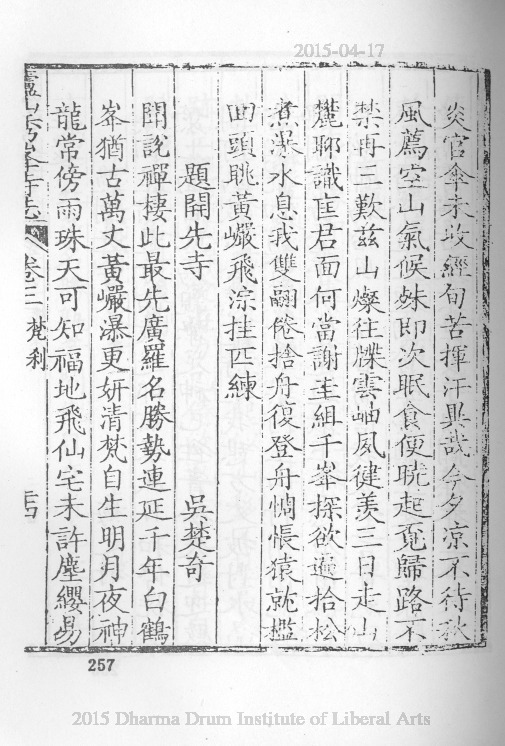 2015-04-17
炎官傘未收經旬苦揮汗異哉今夕凉不待秋
風薦空山氣候殊即次眠食便曉起覔歸路不
禁再三歎茲山燦往牒雲岫夙健羨三日走山
麓聊識匡君面何當謝圭組千峯探欲遍拾松
煮瀑水息我雙翮倦捨舟復登舟惆悵猿就檻
回頭眺黃巖飛淙挂匹練
題開先寺 吳楚奇
聞說禪棲此最先廣羅名勝勢連延千年白鶴
峯猶古萬丈黃巖瀑更妍清梵自生明月夜神
龍常傍雨珠天可知福地飛仙宅未許塵纓易
廬山秀峯寺志 卷三 梵刹
257
2015 Dharma Drum Institute of Liberal Arts